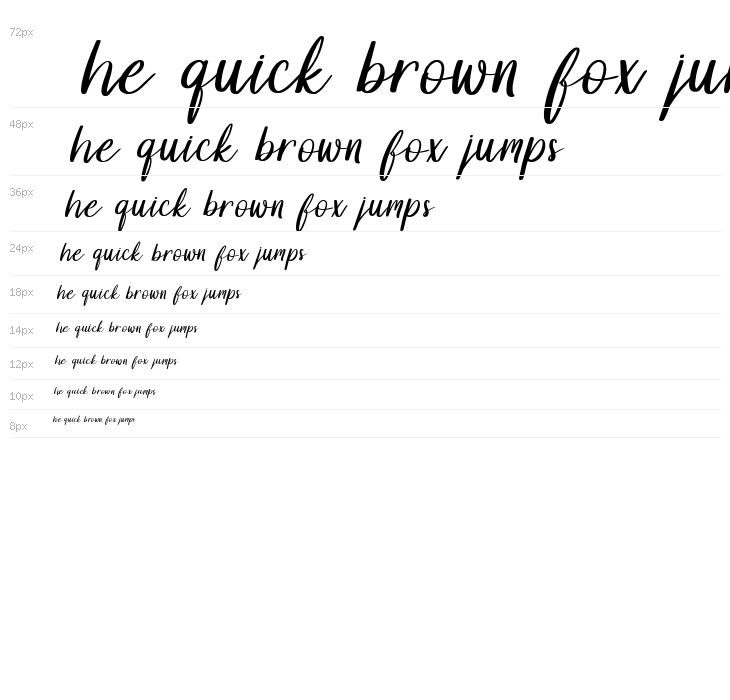 72px
he quick brown fox ju
48px
he quick brown fox jumps
36px
he quick brown fox jumps
24px
he quick brown fox jumps
18px
he quick brown fox jumps
14px
he quick brown fox jumps
12px
he quick brown fox jumps
10px
he quick brown fox jumps
8px
he quick brown fox jumps